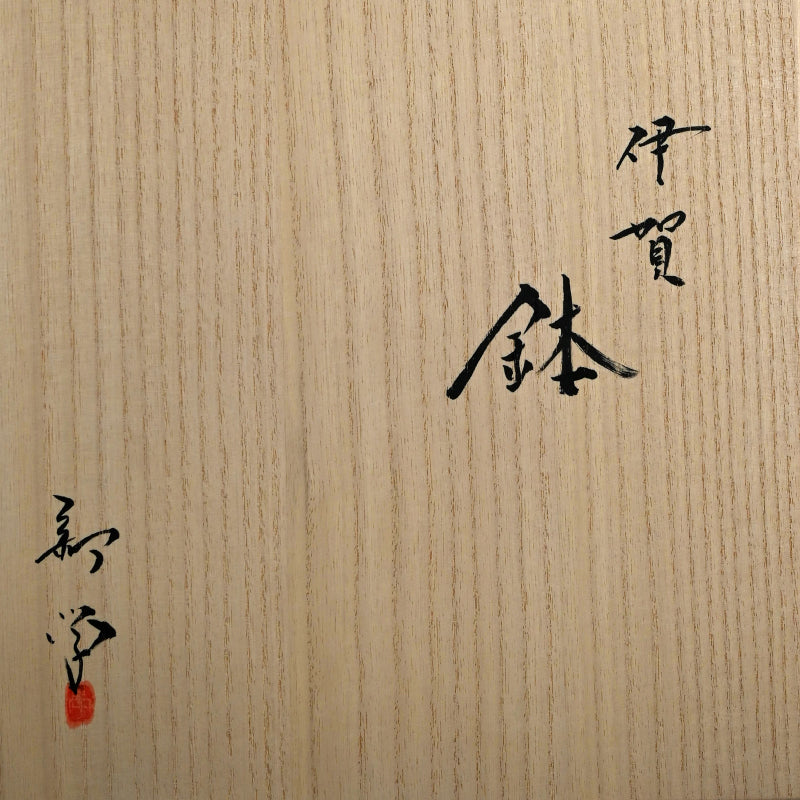 伊賀
鉢
新学